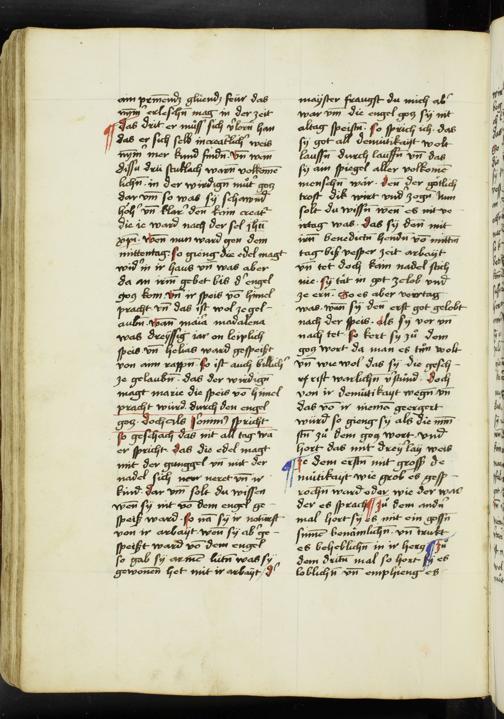 ain prinendz glüendz feür das
nÿm erleschn mag in der zeit
das drit er müss sich v̈lorn han
das er sich selb in creatlich weis
nÿm mer kund findn. vn wan
dissu drü stuklach warn volkome
lichn. in der wirdign müt gotz
dar vm so was sÿ schawnd
höh vn klar den kain creat
die ie ward nach der sel jhu
xpi. wen nun ward gen dem
mittentag. so gieng die edel magt
widr in ir haus vn was aber
da an irm gebet bis d engel
gotz kom. vn ir speis vo himel
pracht vn das ist wol ze gel
aubn. wan maria madalena
was dreÿssig iar on leiplich
speis vn helias ward gespeist
von aim rappn. so ist auch billich
ze gelaubn. das der wirdign
magt marie die speis vo himel
pracht würd durch den engel
gotz. doch als spricht
so geschach das nit all tag wa
er spricht. das die edel magt
mit der gunggel vn mit der
nadel sich neret vn ir
kind. dar vm solt du wissen
wen sÿ nit vo dem engel ge
speist ward. so nä sÿ ir noturft
von ir arbait wen sÿ ab ge
speist ward vo dem engel
so gab sÿ armen lütn was sÿ
gewonen het mit ir arbayt. d
mayster fraugst du mich ab
war vm die engel gotz sÿ nit
altag speistn. so sprich ich. das
sÿ got all demütikayt wolt
laussn durch lauffn vn das
sÿ ain spiegel aller volkome
menschn wär. den der götlich
trost dik wirt vnd zogn nun
solt du wissn wen es nit ve
irtag was. das sÿ den mit
irn benedictn hendn vo mittn
tag bis vesper zeit arbayt
vn tet doch kain nadel stich
nie. sÿ tät in got ze lob vnd
ze ern. so es aber veirtag
was. wan sÿ den erst got gelobt
nach der speis. als sÿ vor vn
nach tet. so kert sÿ zu dem
gotz wort da man es tün wolt
vn wie wol das sÿ die gesch
rift warlichn v̈stünd. doch
von ir demütikayt wegn vn
das vo ir niema geergert
würd so gieng sÿ als die min
stn zu dem gotz wort. vnd
hort das mit dreÿ lay weis
ze dem erstn mit gross de
mütikayt wie grob es gesp
rochn ward oder wie der was
der es sprach. zu dem andn
mal hort sÿ es mit ein
sinne benämlichn vn trukt
es beheblichn in ir hertz. zu
dem dritn mal so hort sÿ es
loblichn vn emphieng es